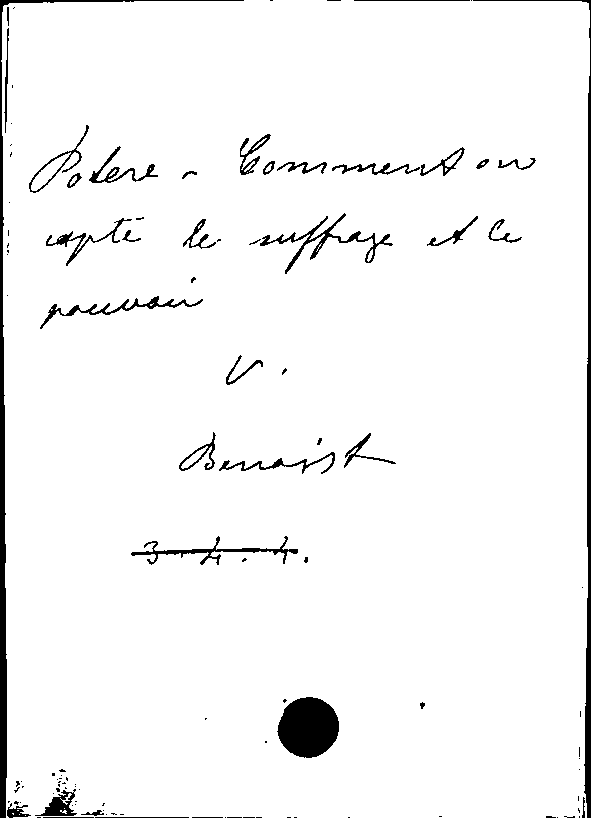 Potere - Comment on
capte le suffrage et le
pouvoir
V.
Benoist
3.4.4.